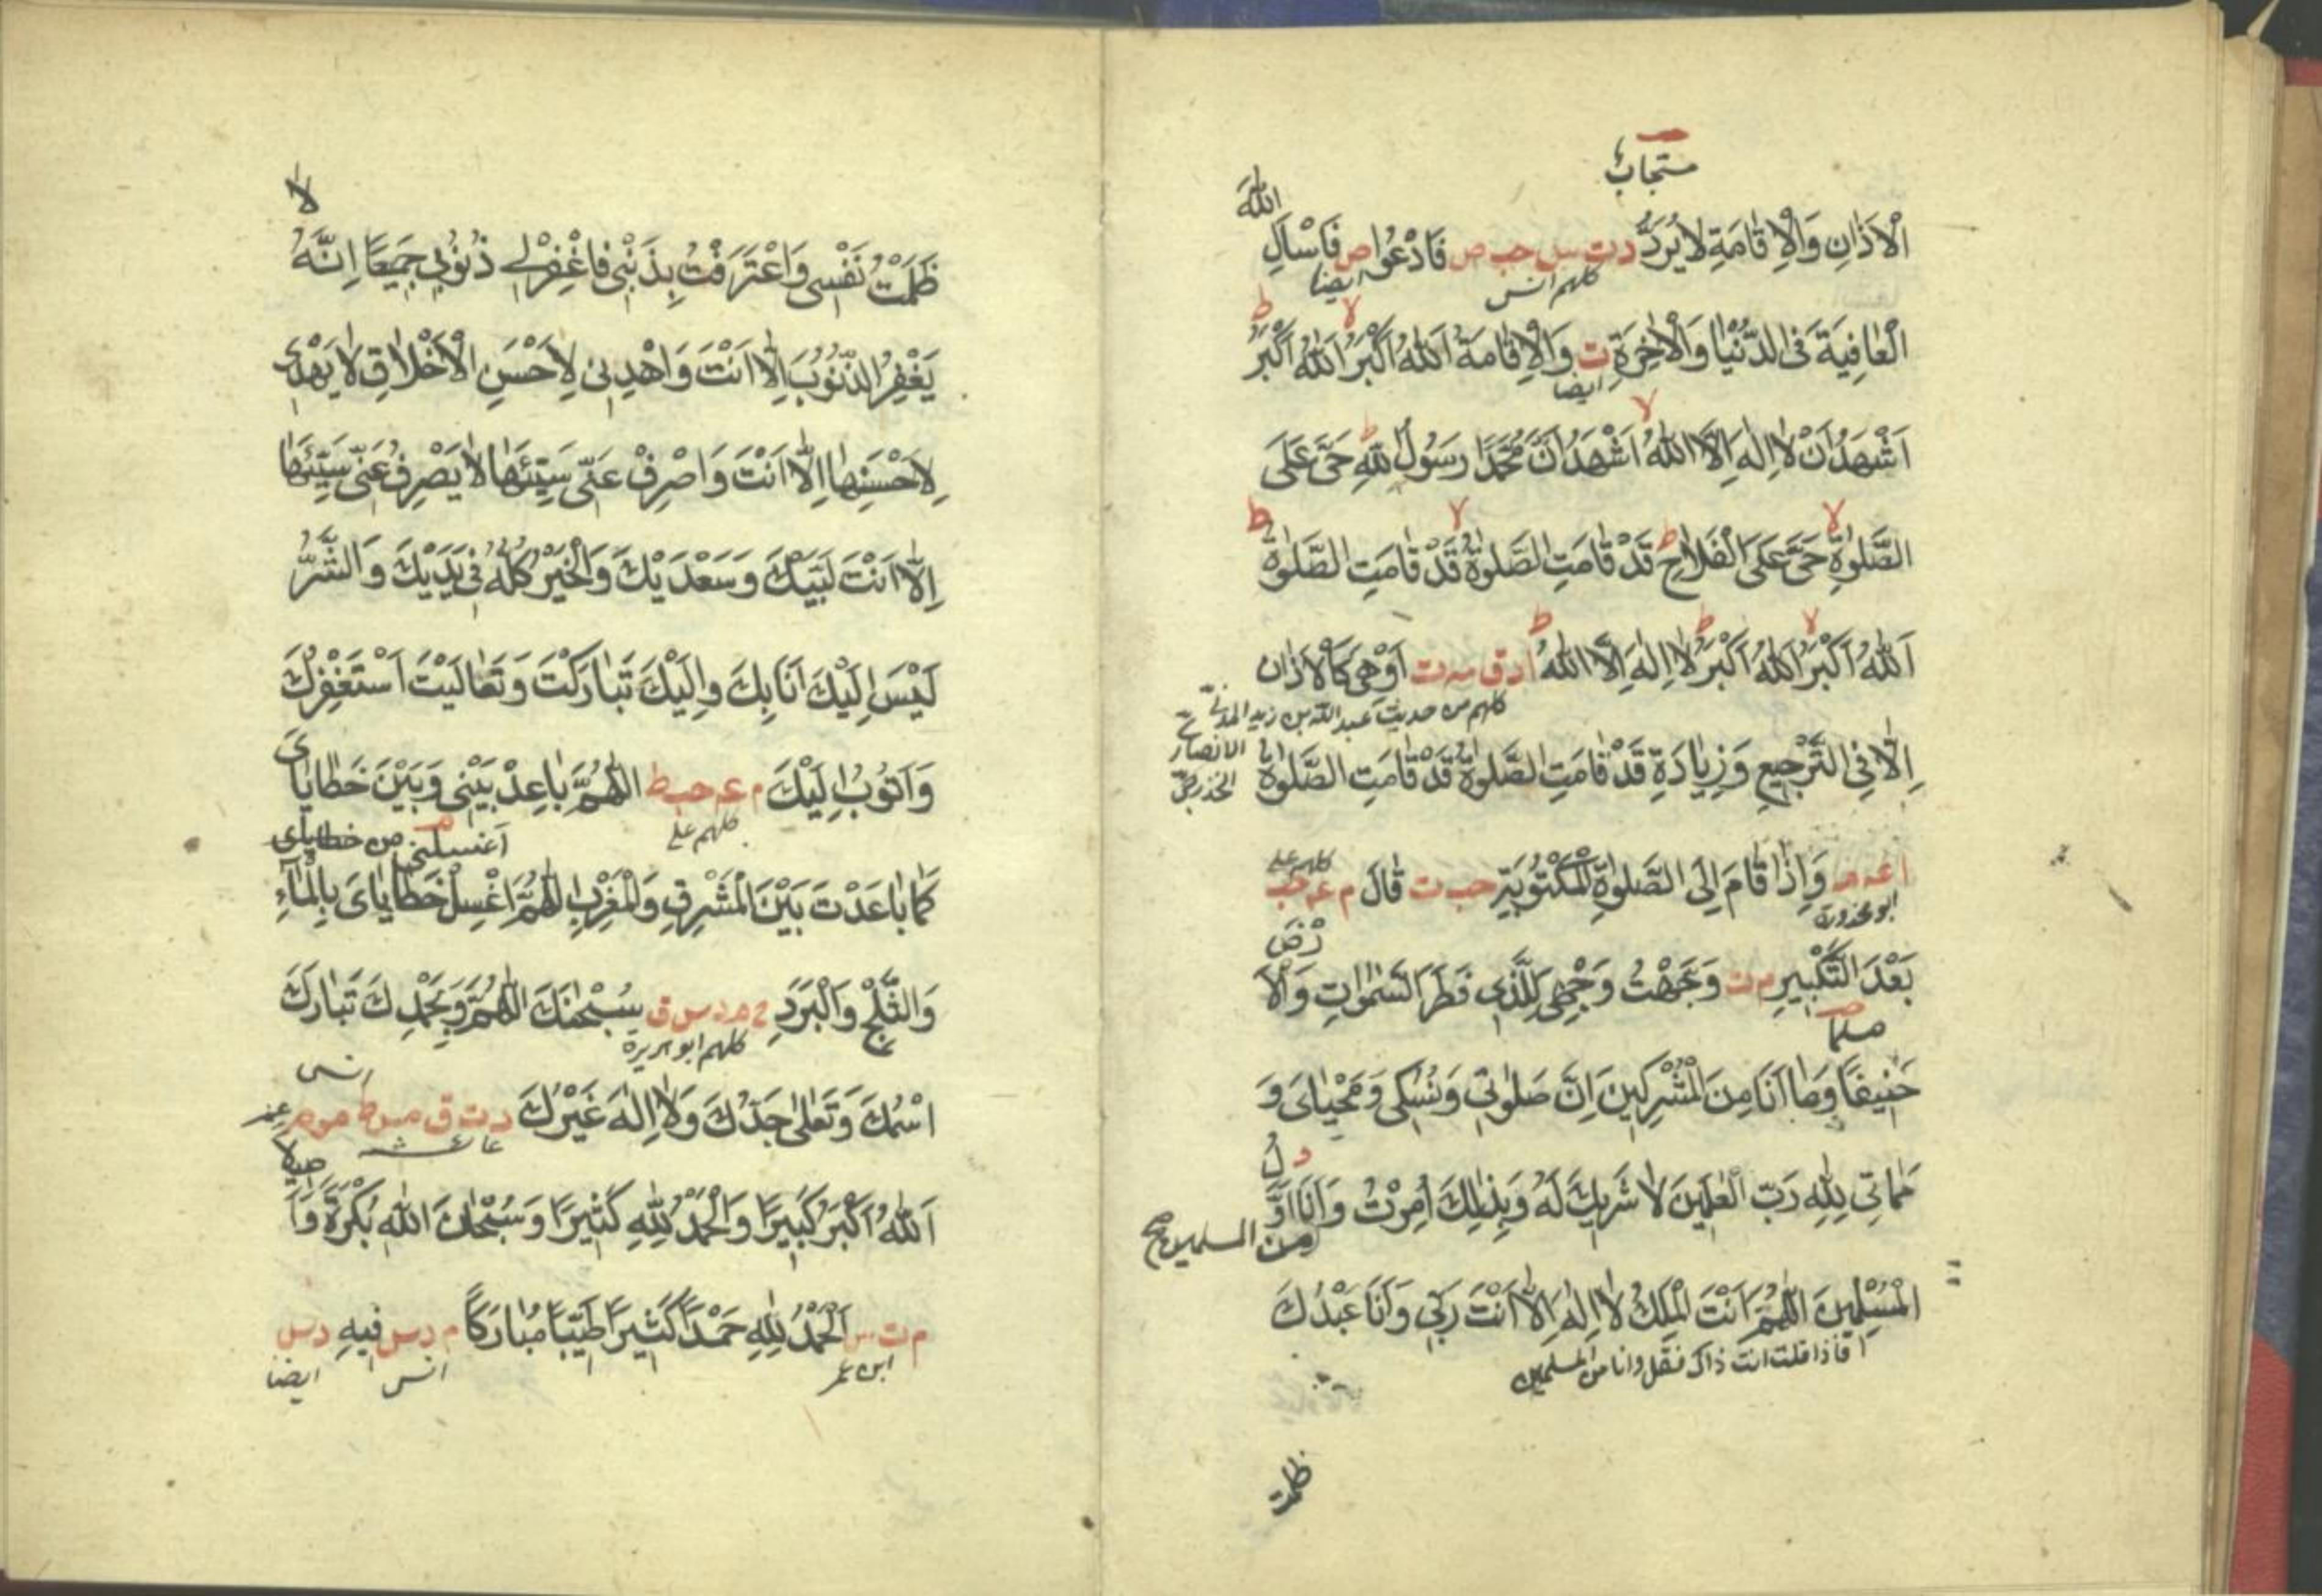 مستجاب
الله
الْاَذَانِ وَالْاِقَامَةِ لَا يُرَدُّ د ت س حب ص فَادْعُوا ص فَاسْاَلِ
كلهم انس ايضا
الْعَافِيَةَ فِى الدُّنْيَا وَالْاٰخِرَةِ ت وَالْاِقَامَةُ اَللّٰهُ اَكْبَرُ اَللّٰهُ اَكْبَرُ
ايضا
اَشْهَدُ اَنْ لَا اِلٰهَ اِلَّا اللّٰهُ اَشْهَدُ اَنَّ مُحَمَّدًا رَسُولُ اللّٰهِ حَىَّ عَلَى
الصَّلٰوةِ حَىَّ عَلَى الْفَلَاحِ قَدْ قَامَتِ الصَّلٰوةُ قَدْ قَامَتِ الصَّلٰوةُ
اَللّٰهُ اَكْبَرُ اَللّٰهُ اَكْبَرُ لَا اِلٰهَ اِلَّا اللّٰهُ ا د ق مه ت اَوْ هِىَ كَالْاَذَانِ
كلهم من حديث عبد الله بن زيد
اِلَّا فِى التَّرْجِيعِ وَزِيَادَةِ قَدْ قَامَتِ الصَّلٰوةُ قَدْ قَامَتِ الصَّلٰوةُ
الانصار
ا عه مه وَاِذَا قَامَ اِلَى الصَّلٰوةِ الْمَكْتُوبَةِ حب ت قَالَ م عه حب
ابو محذورة كلهم على
بَعْدَ التَّكْبِيرِ م ت وَجَّهْتُ وَجْهِىَ لِلَّذِى فَطَرَ السَّمٰوَاتِ وَالْاَرْضَ
مسلما
حَنِيفًا وَمَا اَنَا مِنَ الْمُشْرِكِينَ اِنَّ صَلٰوتِى وَنُسُكِى وَمَحْيَاىَ وَ
مَمَاتِى لِلّٰهِ رَبِّ الْعٰلَمِينَ لَا شَرِيكَ لَهُ وَبِذٰلِكَ اُمِرْتُ وَاَنَا اَوَّلُ د
من المسلمين
الْمُسْلِمِينَ اَللّٰهُمَّ اَنْتَ الْمَلِكُ لَا اِلٰهَ اِلَّا اَنْتَ رَبِّى وَاَنَا عَبْدُكَ
فاذا قلت انت ذاك فقل وانا من المسلمين
ظلمت
لا
ظَلَمْتُ نَفْسِى وَاعْتَرَفْتُ بِذَنْبِى فَاغْفِرْلِى ذُنُوبِى جَمِيعًا اِنَّهُ
يَغْفِرُ الذُّنُوبَ اِلَّا اَنْتَ وَاهْدِنِى لِاَحْسَنِ الْاَخْلَاقِ لَا يَهْدِى
لِاَحْسَنِهَا اِلَّا اَنْتَ وَاصْرِفْ عَنِّى سَيِّئَهَا لَا يَصْرِفُ عَنِّى سَيِّئَهَا
اِلَّا اَنْتَ لَبَّيْكَ وَسَعْدَيْكَ وَالْخَيْرُ كُلُّهُ فِى يَدَيْكَ وَالشَّرُّ
لَيْسَ اِلَيْكَ اَنَا بِكَ وَاِلَيْكَ تَبَارَكْتَ وَتَعَالَيْتَ اَسْتَغْفِرُكَ
وَاَتُوبُ اِلَيْكَ م عه حب ط اَللّٰهُمَّ بَاعِدْ بَيْنِى وَبَيْنَ خَطَايَاىَ
كلهم على اغسلنى من خطاياى
كَمَا بَاعَدْتَ بَيْنَ الْمَشْرِقِ وَالْمَغْرِبِ اَللّٰهُمَّ اغْسِلْ خَطَايَاىَ بِالْمَآءِ
وَالثَّلْجِ وَالْبَرَدِ خ م د س ق سُبْحٰنَكَ اللّٰهُمَّ وَبِحَمْدِكَ تَبَارَكَ
كلهم ابو هريرة
انس
اسْمُكَ وَتَعَالٰى جَدُّكَ وَلَا اِلٰهَ غَيْرُكَ د ت ق مس ط مو م
عائشة
اَللّٰهُ اَكْبَرُ كَبِيرًا وَالْحَمْدُ لِلّٰهِ كَثِيرًا وَسُبْحَانَ اللّٰهِ بُكْرَةً وَاَصِيلًا
م ت س اَلْحَمْدُ لِلّٰهِ حَمْدًا كَثِيرًا طَيِّبًا مُبَارَكًا م د س فِيهِ د س
ابن عمر انس ايضا